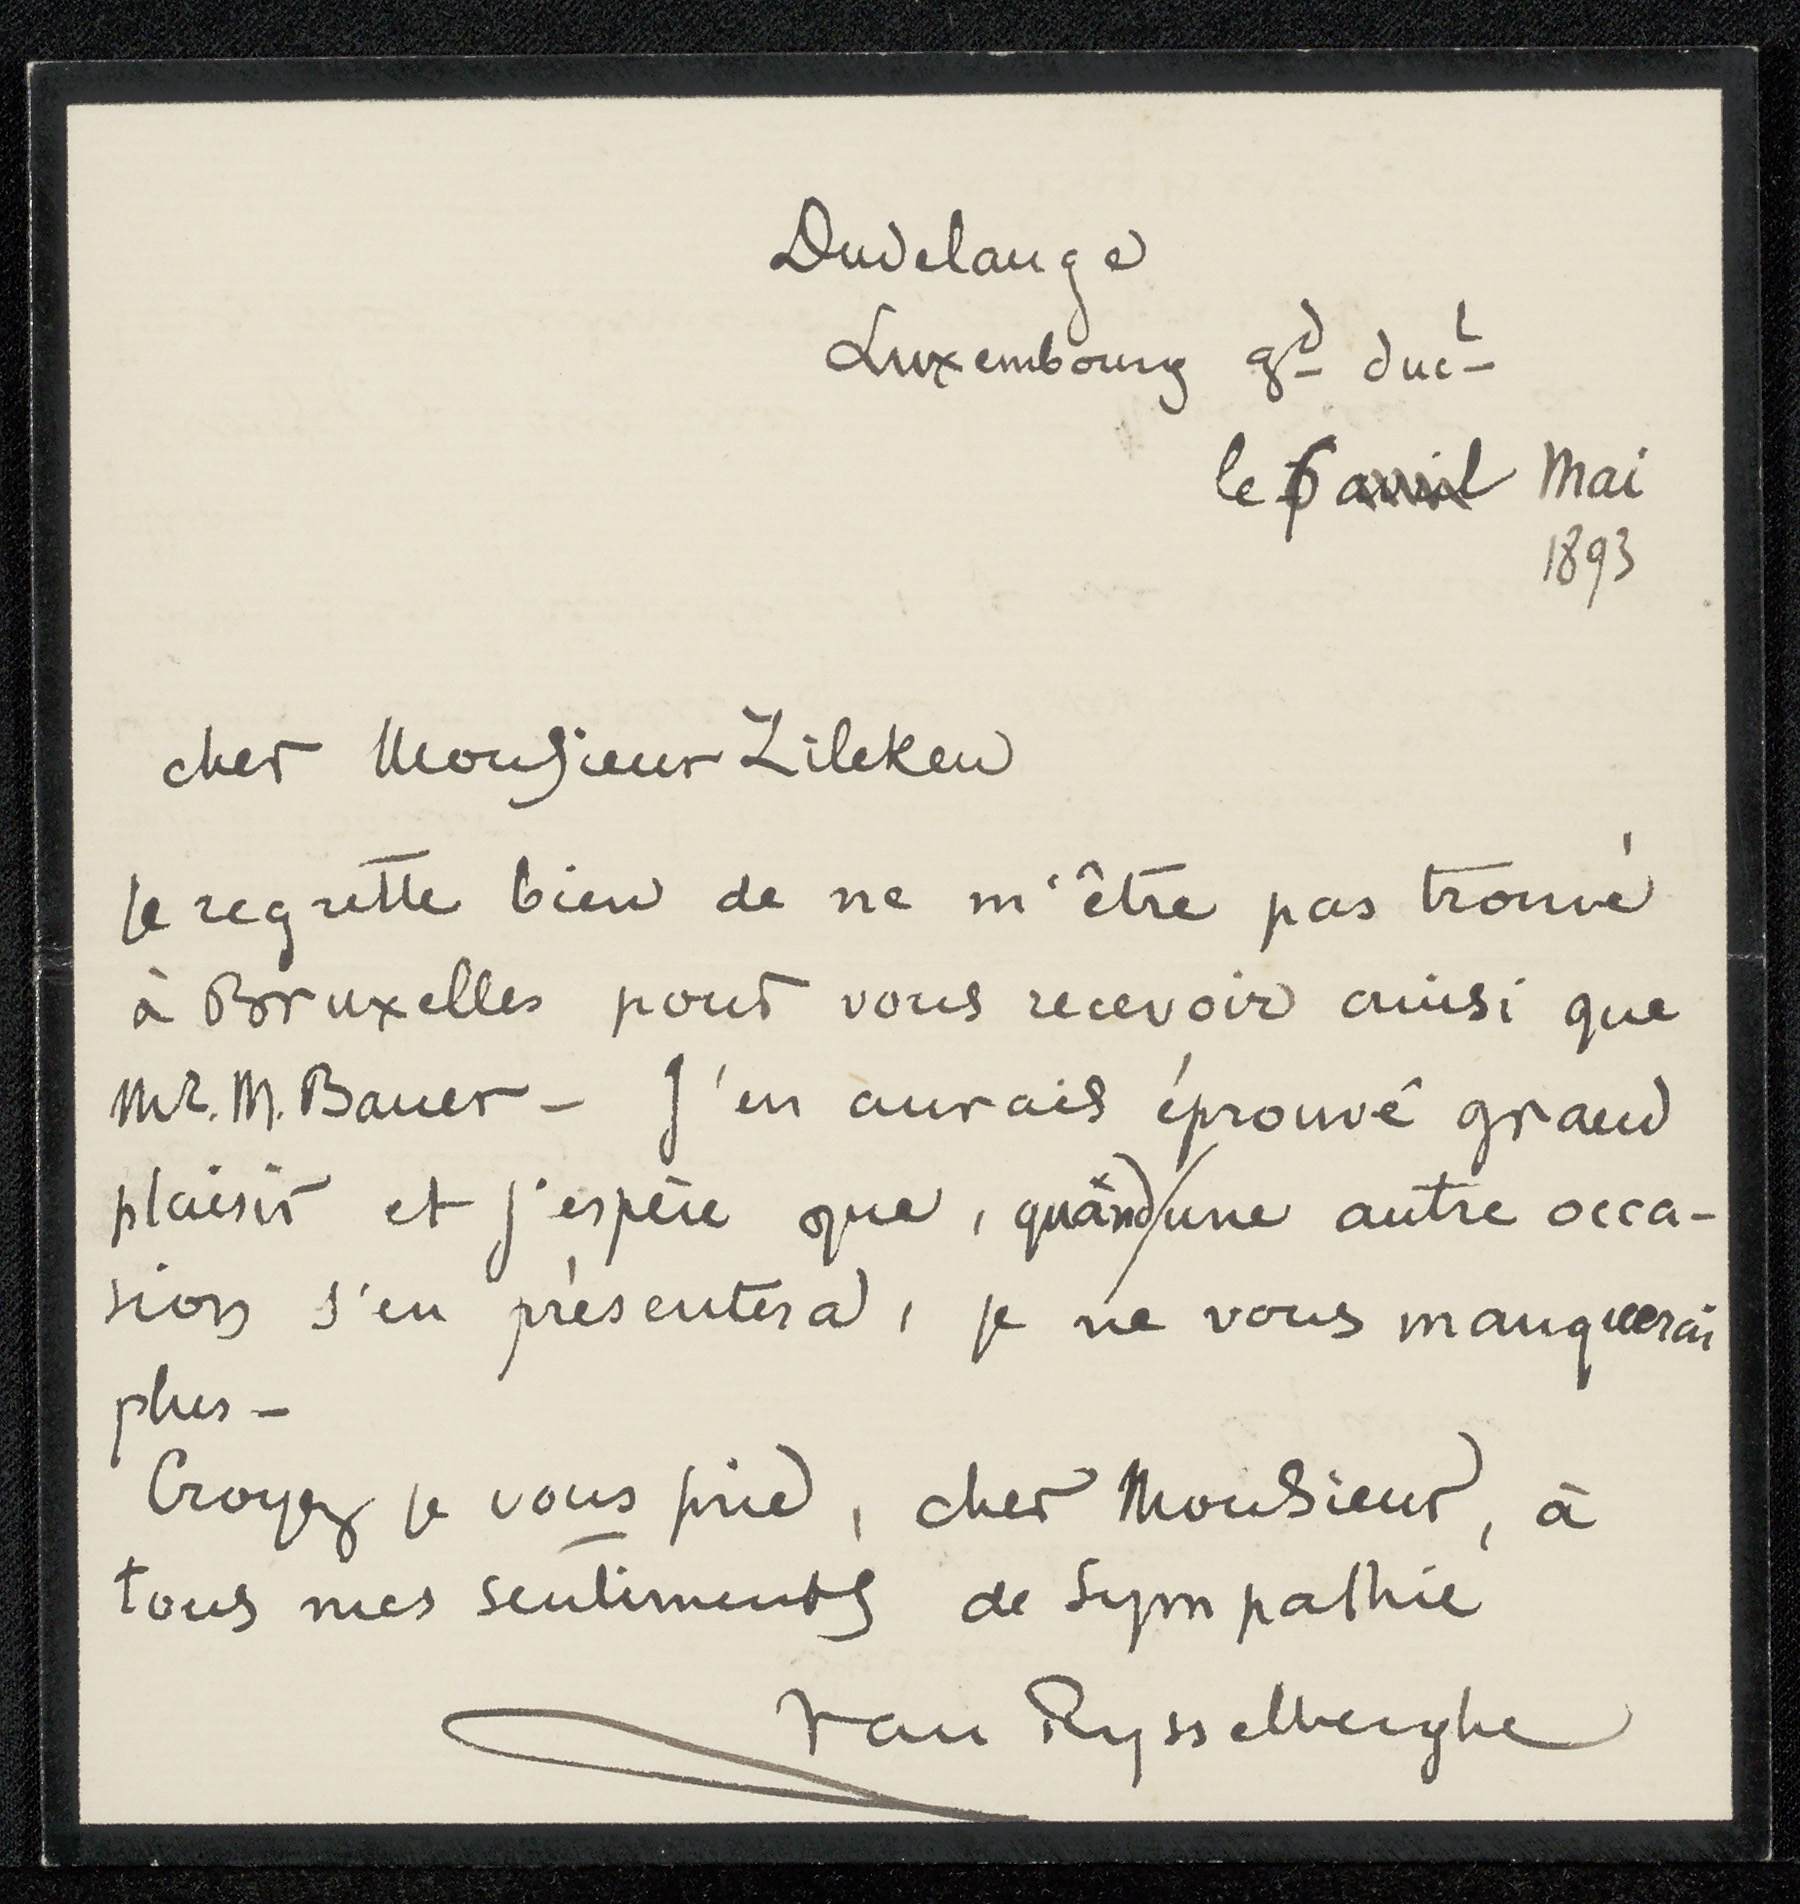 Dudelange
Luxembourg gd duct
le 6 avril Mai
1893
cher Monsieur Zilcken
je regrette bien de ne m'être pas trouvé
à Bruxelles pour vous recevoir ainsi que
Mr. M. Bauer – J'en aurais éprouvé grand
plaisir et j'espère que, quand une autre occa-
sion s'en présentera, je ne vous manquerai
plus –
Croyez je vous prie, cher Monsieur, à
tous mes sentiments de sympathie
Van Rysselberghe